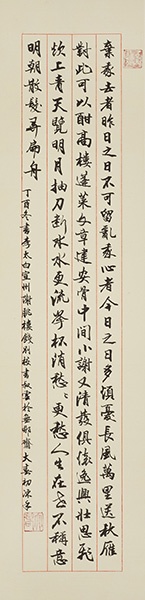 棄我去者昨日之日不可留亂我心者今日之日多煩憂長風萬里送秋雁
對此可以酣高樓蓬萊文章建安骨中間小謝又清發俱懷逸興壯思飛
欲上青天覽明月抽刀斷水水更流舉杯消愁〻更愁人生在世不稱意
明朝散髮弄扁舟
丁酉冬書李太白宣州謝朓樓餞別校書叔雲於